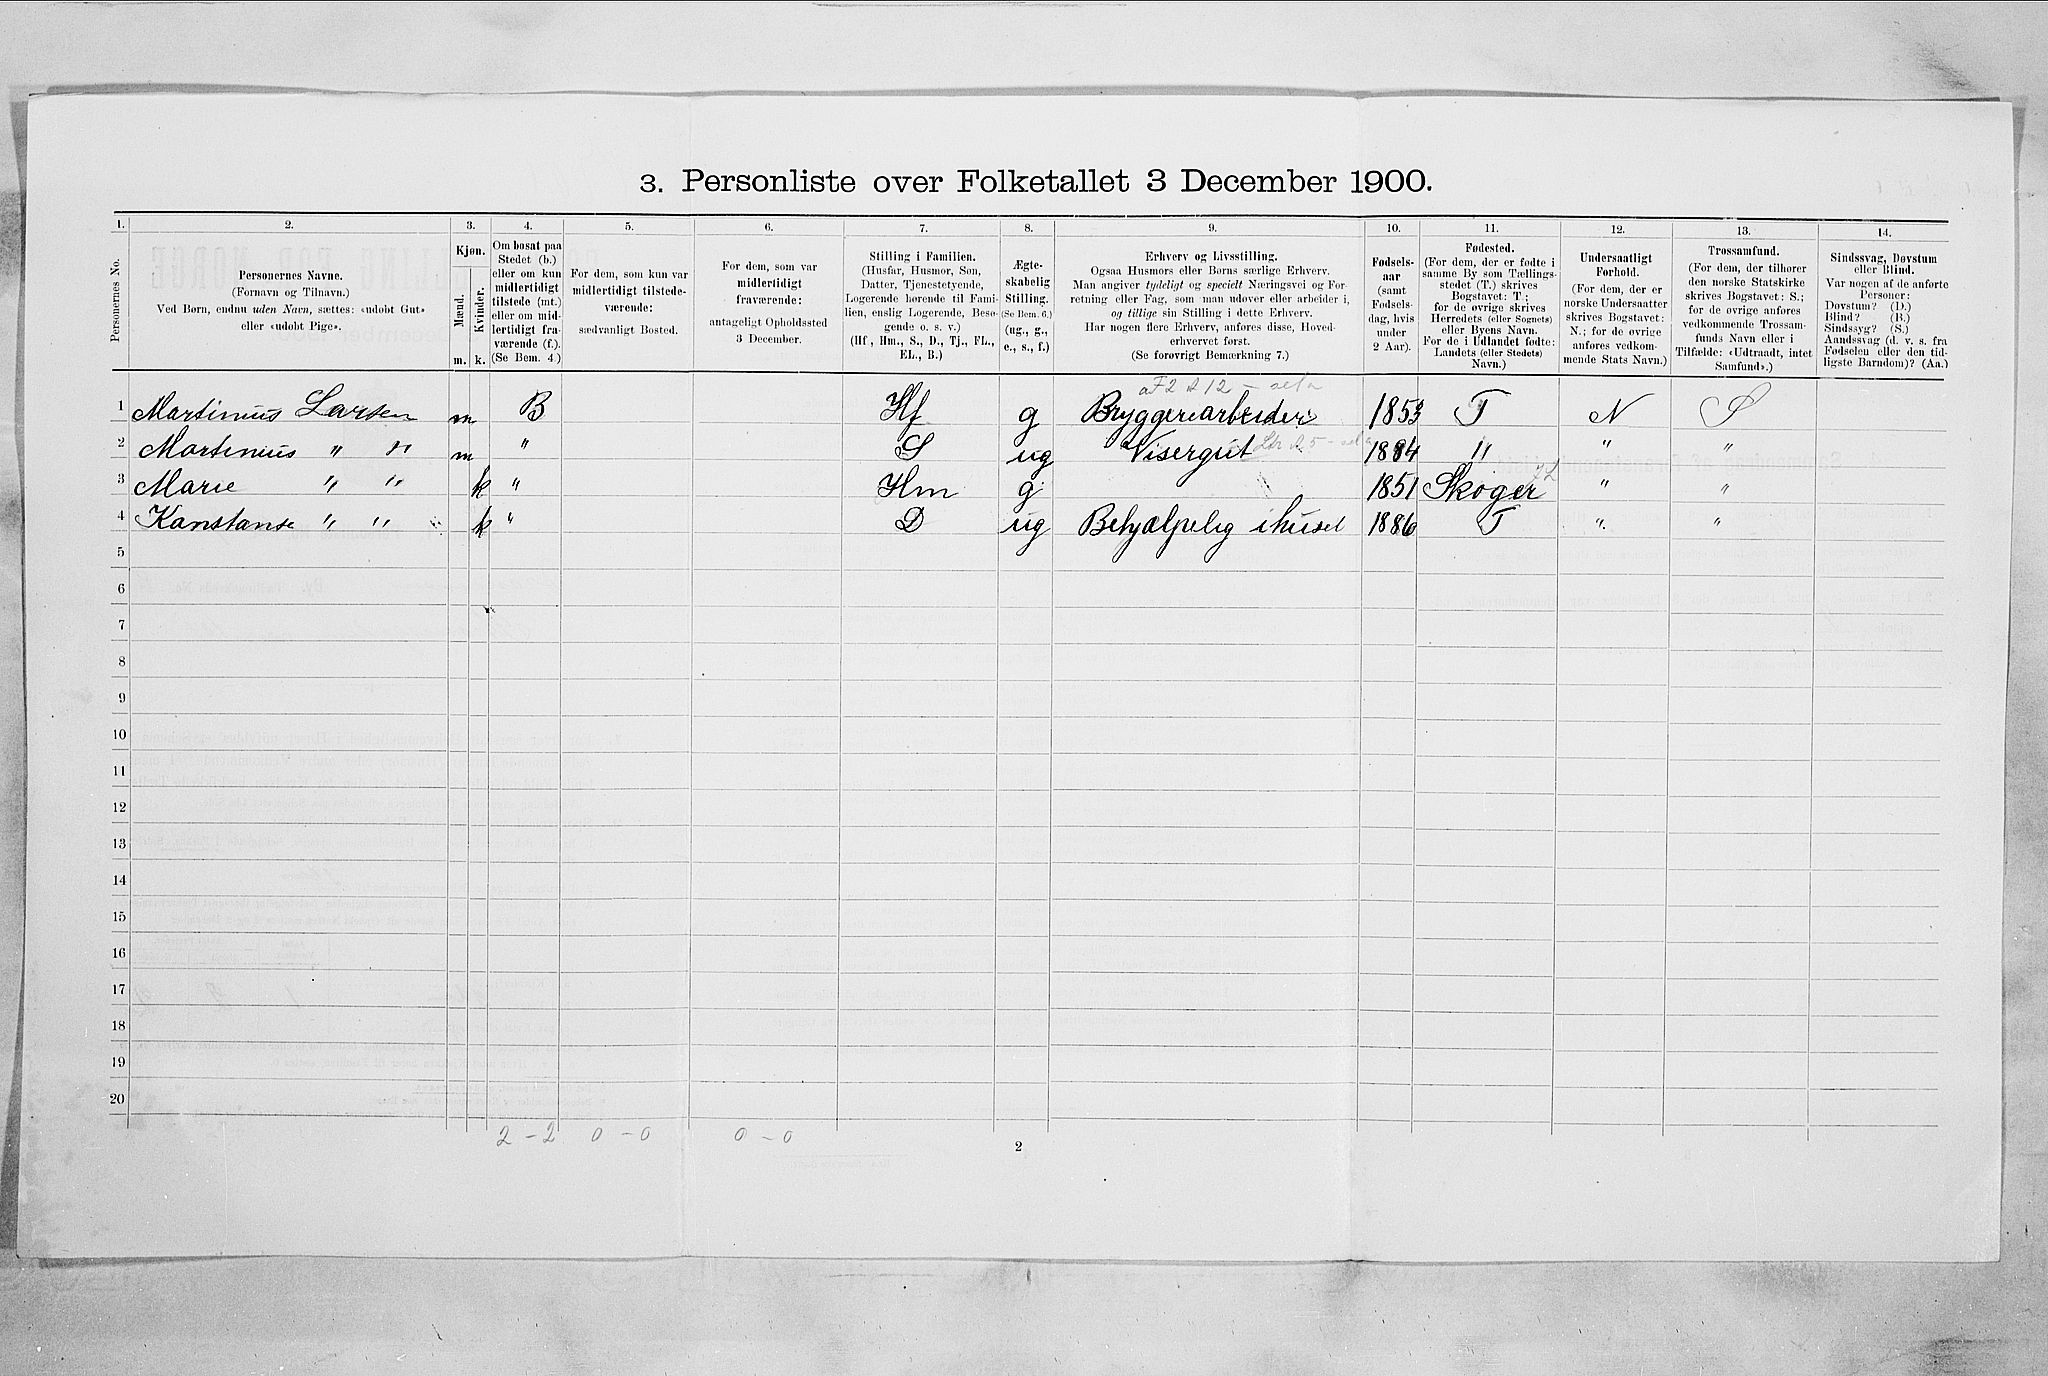 3. Personliste over Folketallet 3 December 1900.
1. 2. 3. 4. 5. 6. 7. 8. 9. 10. 11. 12. 13. 14.
Personernes No.
Personernes Navne.
(Fornavn og Tilnavn.)
Ved Børn, endnu uden Navn, sættes: «udøbt Gut»
eller «udøbt Pige».
Kjøn.
Mænd.
Kvinder.
m. k.
Om bosat paa
Stedet (b.)
eller om kun
midlertidigt
tilstede (mt.)
eller om mid-
lertidigt fra-
værende (f.).
(Se Bem. 4.)
For dem, som kun var
midlertidigt tilstede-
værende:
sædvanligt Bosted.
For dem, som var
midlertidigt
fraværende:
antageligt Opholdssted
3 December.
Stilling i Familien.
(Husfar, Husmor, Søn,
Datter, Tjenestetyende,
Logerende hørende til Fami-
lien, enslig Logerende, Besø-
gende o. s. v.)
(Hf., Hm., S., D., Tj., FL.,
EL., B.)
Ægte-
skabelig
Stilling.
(Se Bem. 6.)
(ug., g.,
e., s., f.)
Erhverv og Livsstilling.
Ogsaa Husmors eller Børns særlige Erhverv.
Man angiver tydeligt og specielt Næringsvei og For-
retning eller Fag, som man udøver eller arbeider i,
og tillige sin Stilling i dette Erhverv.
Har nogen flere Erhverv, anføres disse, Hoved-
erhvervet først.
(Se forøvrigt Bemærkning 7.)
Fødsels-
aar
(samt
Fødsels-
dag, hvis
under
2 Aar).
Fødested.
(For dem, der er fødte i
samme By som Tællings-
stedet (T.) skrives
Bogstavet: T.;
for de øvrige skrives
Herredets (eller Sognets)
eller Byens Navn.
For de i Udlandet fødte:
Landets (eller Stedets)
Navn.)
Undersaatligt
Forhold.
(For dem, der er
norske Undersaatter
skrives Bogstavet:
N.; for de øvrige
anføres vedkom-
mende Stats Navn.)
Trossamfund.
(For dem, der tilhører
den norske Statskirke
skrives Bogstavet: S.;
for de øvrige anføres
vedkommende Trossam-
funds Navn eller i
Tilfælde: «Udtraadt, intet
Samfund».)
Sindssvag, Døvstum
eller Blind.
Var nogen af de anførte
Personer:
Døvstum? (D.)
Blind? (B.)
Sindssyg? (S.)
Aandssvag (d. v. s. fra
Fødselen eller den tid-
ligste Barndom)? (Aa.)
1 Martinius Larsen m B Hf g Bryggeriarbeider 1853 T N S
2 Martinius " " m " S ug Visergut 1884 " " "
3 Marie " " k " Hm g 1851 Skoger " "
4 Kanstanse " " k " D ug Behjælpelig i huset 1886 T " "
5
6
7
8
9
10
11
12
13
14
15
16
17
18
19
20
2 - 2 0 - 0 0 - 0
2